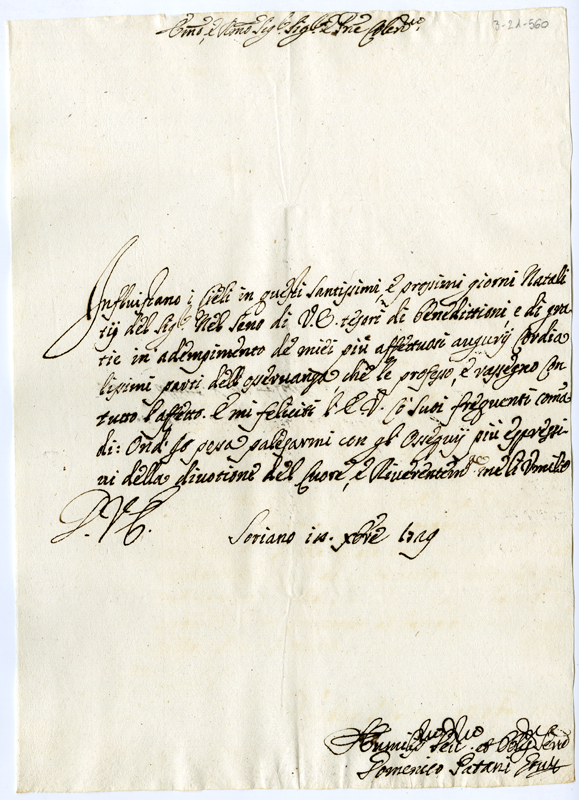 Emo, e Rmo Sigre Sigre e Pne Colendmo
3-21-560
Influiscano i Cieli in questi santissimi, e prossimi giorni Natali
tij del Sigre Nel seno di V.E. tesori di benedittioni e di gra
tie in adempimento de miei più affettuosi augurij Cordia
lissimi parti dell'osservanza che le professo, e rassegno Con
tutto l'affetto. E mi feliciti l'E.V. Co' suoi frequenti coma
di: Ond'Io possa palesarmi con gl'Ossequij più espressi
vi della divotione del Cuore, e Riverentemte me li Umilio
D. V. E.
Soriano xbre 1719
Humilmo et Servo
Domenico Patani